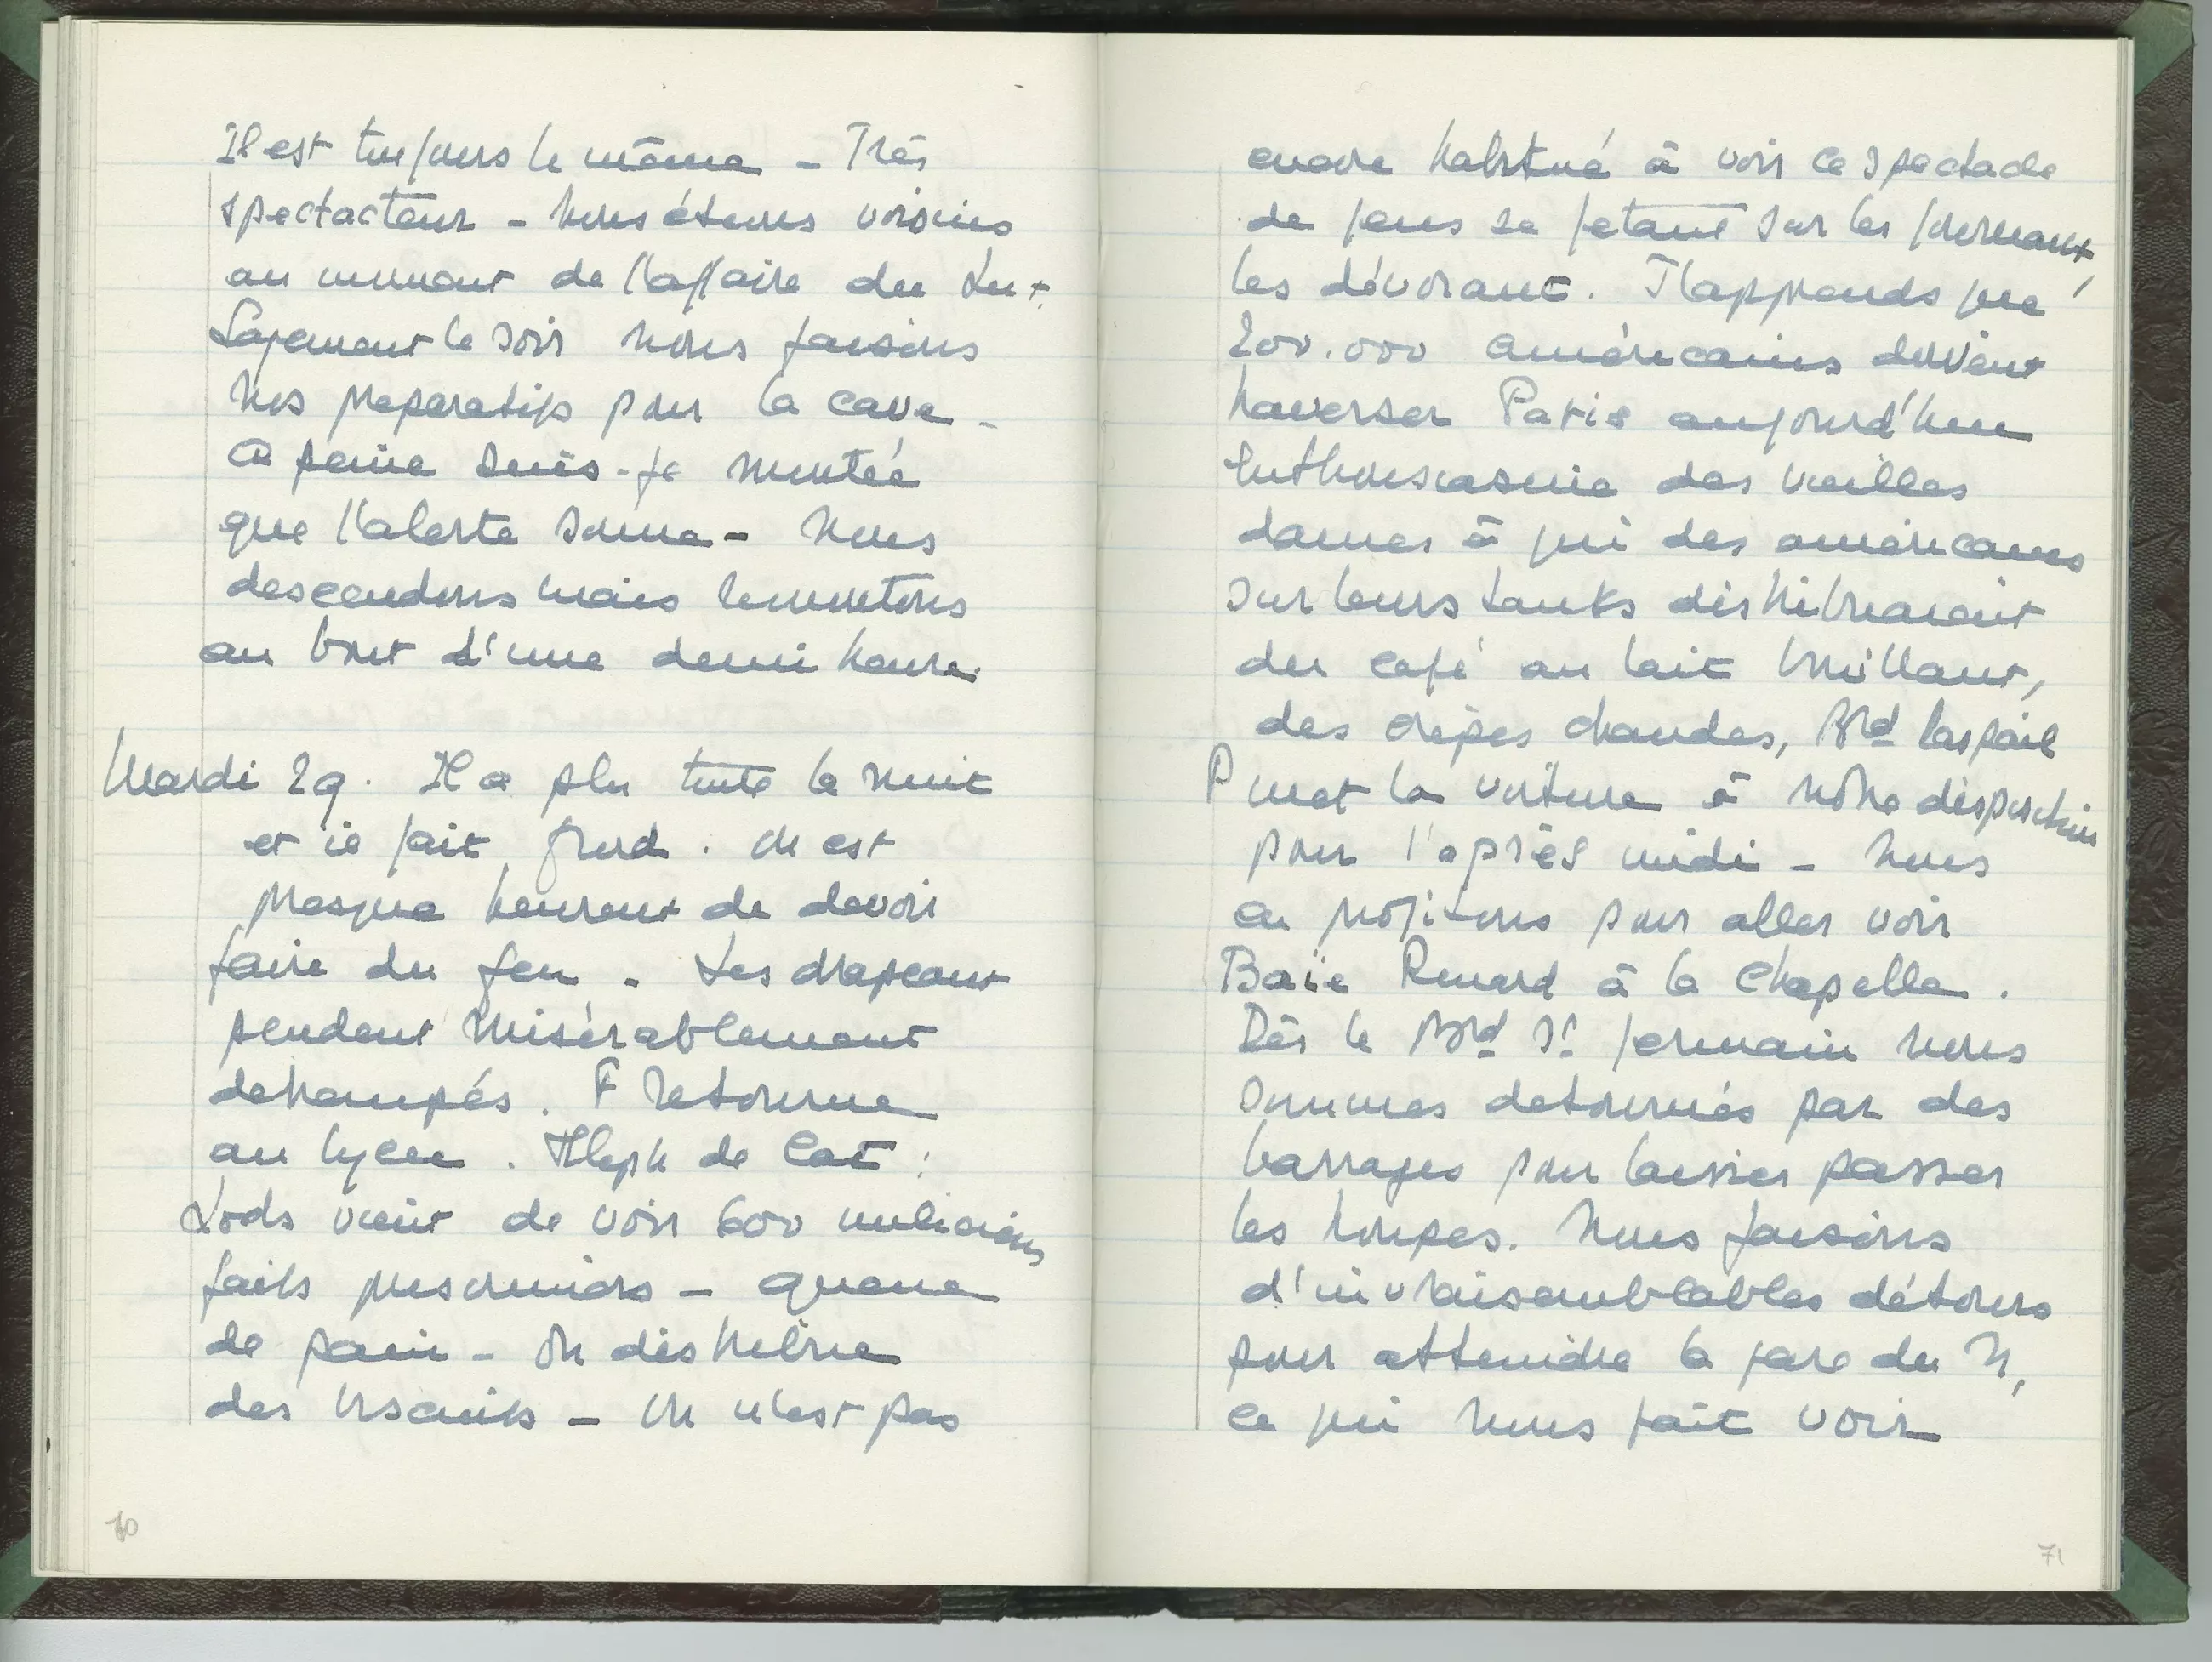 Il est toujours le même - Très
spectacteur - Nous étions voisins
au moment de l'affaire du Lut.
Sagement le soir nous faisons
nos preparatifs pour la cave -
A peine suis-je montée
que l'alerte sonne - Nous
descendons mais remontons
au bout d'une demi heure.
Mardi 29. Il a plu toute la nuit
et il fait froid. On est
presque heureux de devoir
faire du feu - Les drapeaux
pendent misérablement
detrempés. F retourne
au lycee. Teleph de Cat :
Lods vient de voir 600 miliciens
faits prisonniers - Queue
de pain - On distribue
des biscuits - On n'est pas
70
encore habitué à voir ce spectacle
de gens se jetant sur les journaux,
les dévorant. J'apprends que
200.000 américains doivent
traverser Paris aujourd'hui
Enthousiasme des vieilles
dames à qui des américains
sur leurs tanks distribuaient
du café au lait bouillant,
des crêpes chaudes, Bld Raspail
P met la voiture à notre disposition
pour l'après midi - Nous
en profitons pour aller voir
Baïe Renard à la Chapelle.
Dès le Bld St Germain nous
sommes detournés par des
barrages pour laisser passer
les troupes. Nous faisons
d'invraisemblables détours
pour atteindre la gare du N,
ce qui nous fait voir
71